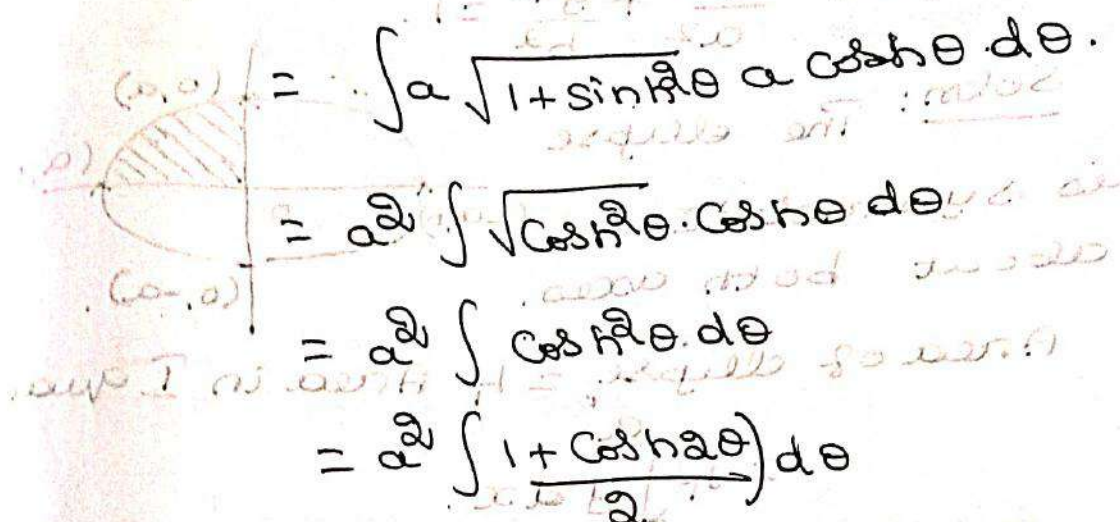 = ∫ a √(1 + sinh²θ) a coshθ dθ.
= a² ∫ √(cosh²θ) · coshθ dθ
= a² ∫ cosh²θ · dθ
= a² ∫ (1 + cosh2θ)/2) dθ